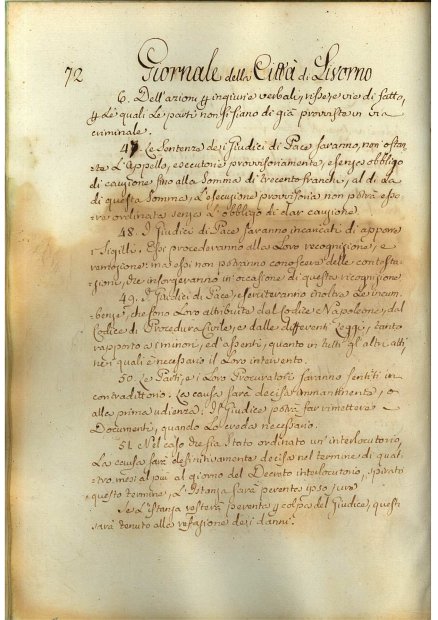 72 Giornale della Città di Livorno
6. Dell'azioni p ingiurie verbali, risse, e vie di fatto,
p Le quali Le parti non si siano di già provviste in via
criminale.
47. Le Sentenze dei Giudici di Pace saranno, non ostan
te L'Appello, esecutorie provvisoriamente, e senza obbligo
di cauzione fino alla Somma di trecento franchi; al di La
di questa Somma, L'esecuzione provvisoria non potrà esse
re ordinata senza L'obbligo di dar cauzione.
48. I Giudici di Pace saranno incaricati di apporre
i Sigilli. Essi procederanno alla Loro recognizione, e
remozione: ma essi non potranno conoscere delle contesta
zioni, che insorgeranno in occasione di questa ricognizione
49. I Giudici di Pace, eserciteranno inoltre Le incum
benze, che sono Loro attribuite dal Codice Napoleone, dal
Codice di Procedura Civile, e dalle differenti Leggi, tanto
rapporto a i minori, ed assenti, quanto in tutti gl'altri atti,
nei quali è necessario il Loro intervento.
50. Le Parti, e i Loro Procuratori saranno sentiti in
contradittorio. La causa sarà decisa immantinente, o
alla prima udienza. Il Giudice potrà far rimettere i
Documenti, quando Lo creda necessario.
51. Nel caso che sia Stato ordinato un'interlocutorio,
La causa sarà definitivamente decisa nel termine di quat
tro mesi al più al giorno del Decreto interlocutorio, spirato
questo termine, L'Istanza sarà perenta ipso jure
Se L'istanza resterà perenta p colpa del Giudice, questi
sarà tenuto alla refazione dei danni.